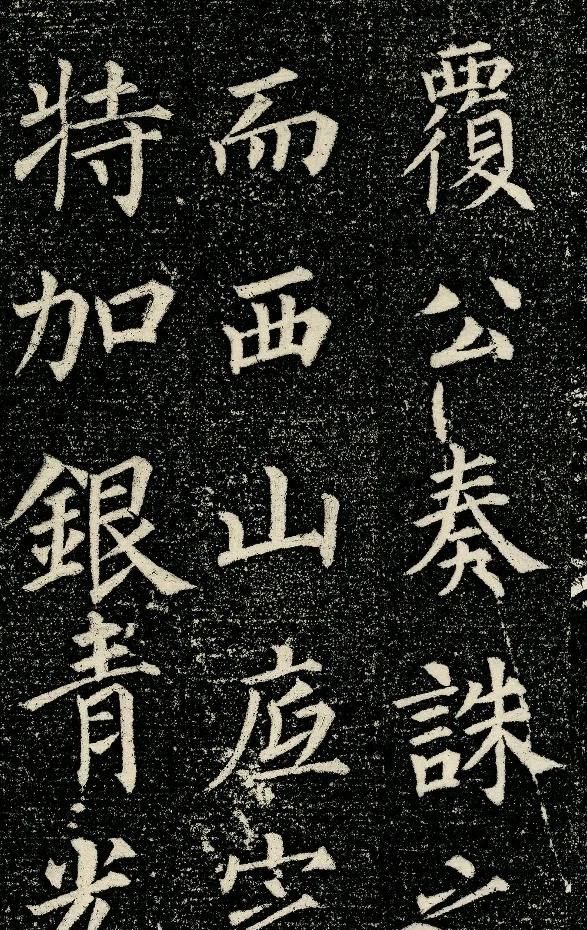 覆公奏誅之
而西山底定
特加銀青光